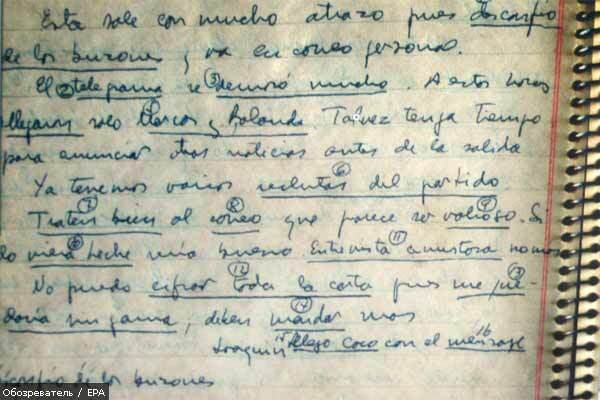 Esta sale con mucho atrazo pues desconfio
de los buzones, va en correo personal.
El ② telegrama se ③ demoró mucho. A estas horas
llegaron solo Marcos y Rolando. Talvez tenga tiempo
para anunciar otras noticias antes de la salida
Ya tenemos varios reclutas ⑥ del partido.
⑦ Traten bien al ⑧ correo que parece ser ⑨ valioso. Si
lo viera Leche sería bueno. Entrevista ⑪ amistosa no
No puedo cifrar ⑫ toda la carta pues me
daría mi gama, deben mandar mas
Joaquin llego Coco con el mensaje 16
de los buzones
Обозреватель / EPA